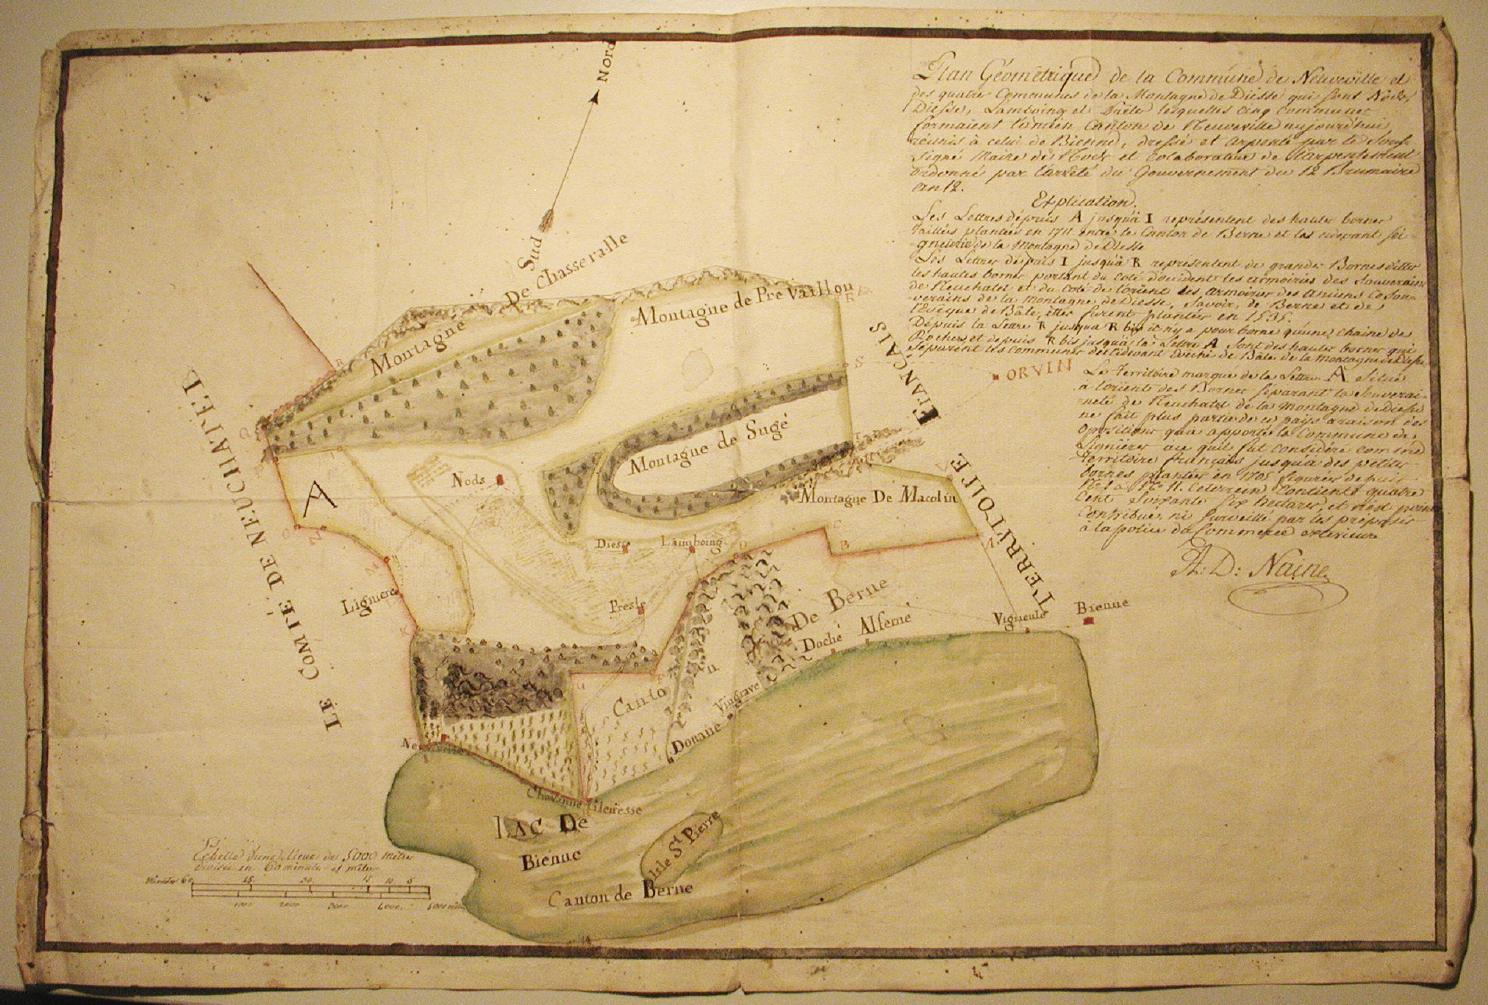 Plan Géometrique de la Commune de Neuveville et
des quatre Communes de la Montagne de Diesse qui sont Nods,
Diesse, Lamboing et Prêle lesquelles cinq communes
formaient l'ancien Canton de Neuveville aujourd'hui
réunis à celui de Bienne, dressé et arpenté par le Sous-
signé Maire de Nods et Colaborateur de l'arpentement
ordonné par l'arrêté du Gouvernement du 12 Brumaire
an 12.
Explication.
Les Lettres dépuis A jusqu'à I représentent des hautes bornes
taillés plantées en 1711 entre le Canton de Berne et les cidevant sei-
gneurie de la Montagne de Diesse
Les Lettres depuis I jusqu'à R représentent de grandes Bornes dittes
les hautes bornes portant du coté d'occident les armoiries des Souverains
de Neuchatel et du coté de l'orient les armoiries des anciens Co Sou-
verains de la montagne de Diesse, Savoir, de Berne et de
l'Evêque de Bâle, elles furent plantées en 1535.
Dépuis la Lettre R jusqua R bis il n'y a pour borne qu'une chaine de
Rochers et depuis R bis jusqu'à la Lettre A sont des hautes bornes qui
séparent les Communes de Cidevant Evêché de Bâle de la montagne de Diesse
Le Territoire marqué de la Lettre A situé
à l'orient des Bornes séparant la Souverai-
neté de Neuchatel de la Montagne de Diesse
ne fait plus partie de ce pays a raison des
opositions qu'a apporté la Commune de
Lignières ce qui fut considéré comme
territoire français jusqu'à des petites
bornes plantées en 1705 figurées depuis
contient quatre
cent Soixante Six Hectares, et n'est point
Contribué ni Surveillé par les préposés
à la police du Commerce extérieur
A: D: Naine
Nord
Sud
Montagne De Chasseralle
Montagne de Pré Vaillon
R
S
ORVIN
Montagne de Sugé
Montagne De Macolin
TERRITOIRE FRANÇAIS
LE COMTÉ DE NEUCHATEL
Q
A
Nods
O
N
M
Lignere
K
Diesse
Lamboing
D
C
B
Presle
Canton De Berne
Doché
Alfemé
Vigneule
Bienne
G
F
Vingrave
Douane
Neuveville
I
Chavanne
Gleresse
LAC De
Bienne
Isle St Pierre
Canton de Berne
Echelle d'une Lieue de 5000 Metres
divisée en 60 minutes et metres
Minutes 60 45 30 15 10 5
1000 2000 3000 4000 5000